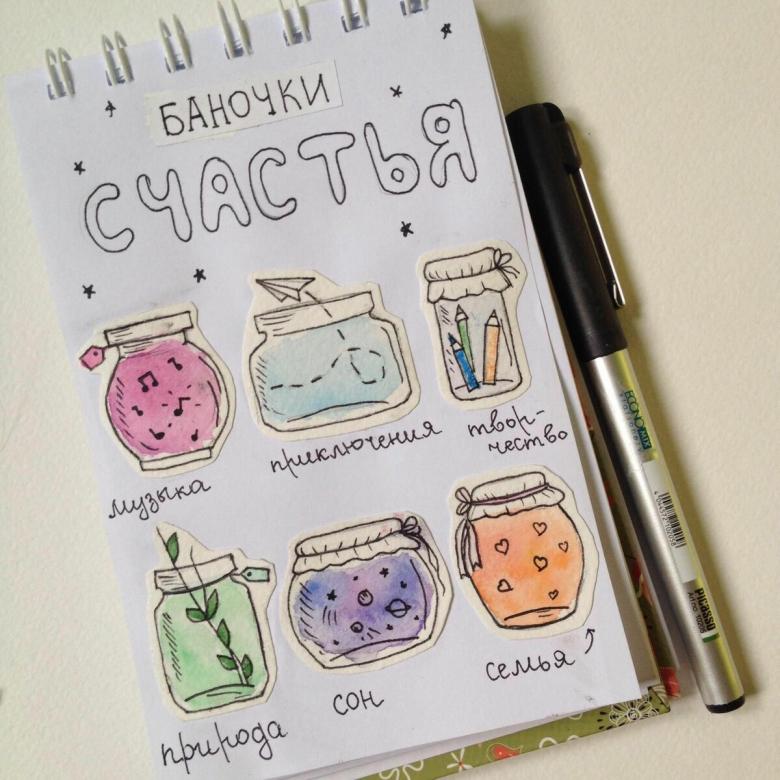 БАНОЧКИ
СЧАСТЬЯ
музыка
приключения
твор-
чество
природа
сон
семья
ECONOMIX
PICASSO